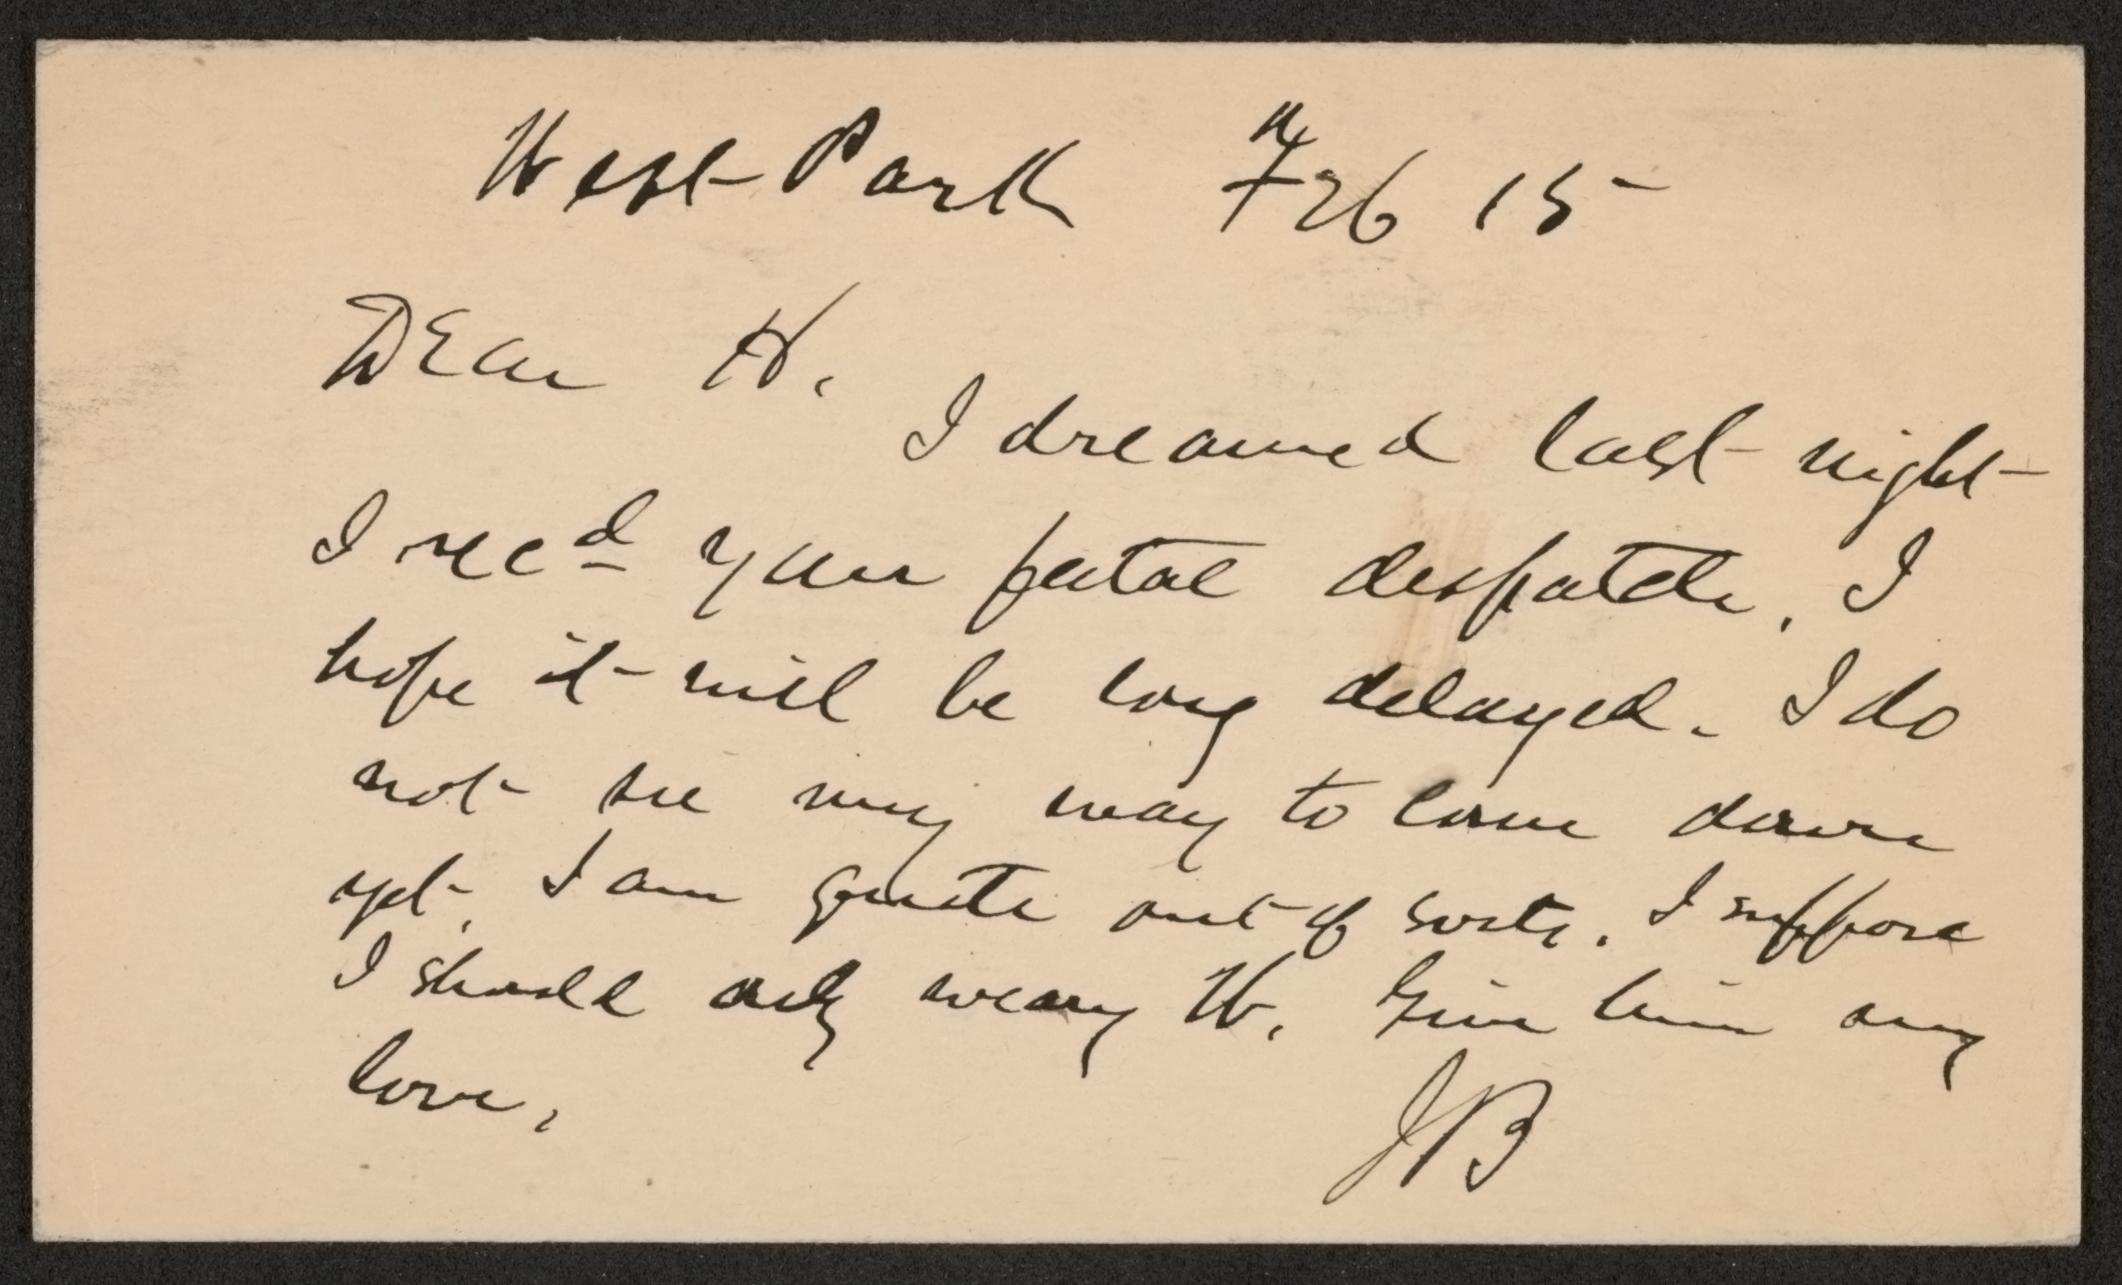 West Park Feb 15
Dear H.
I dreamed last night
I recd your fatal despatch. I
hope it will be long delayed. I do
not see my way to come down
yet. I am quite out of sorts. I suppose
I should only weary W. Give him my
love.
JB